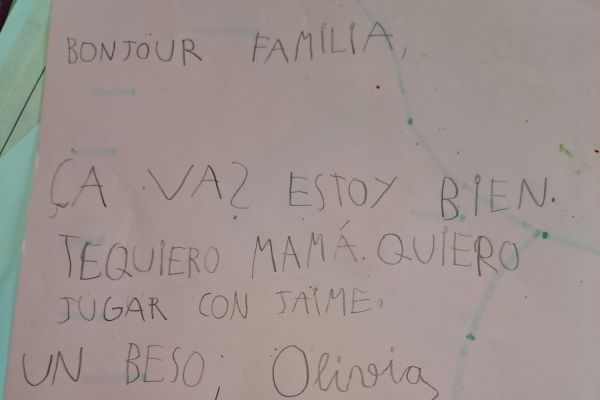 BONJOUR FAMILIA,
ÇA VA? ESTOY BIEN.
TEQUIERO MAMÁ. QUIERO
JUGAR CON JAIME.
UN BESO, Olivia